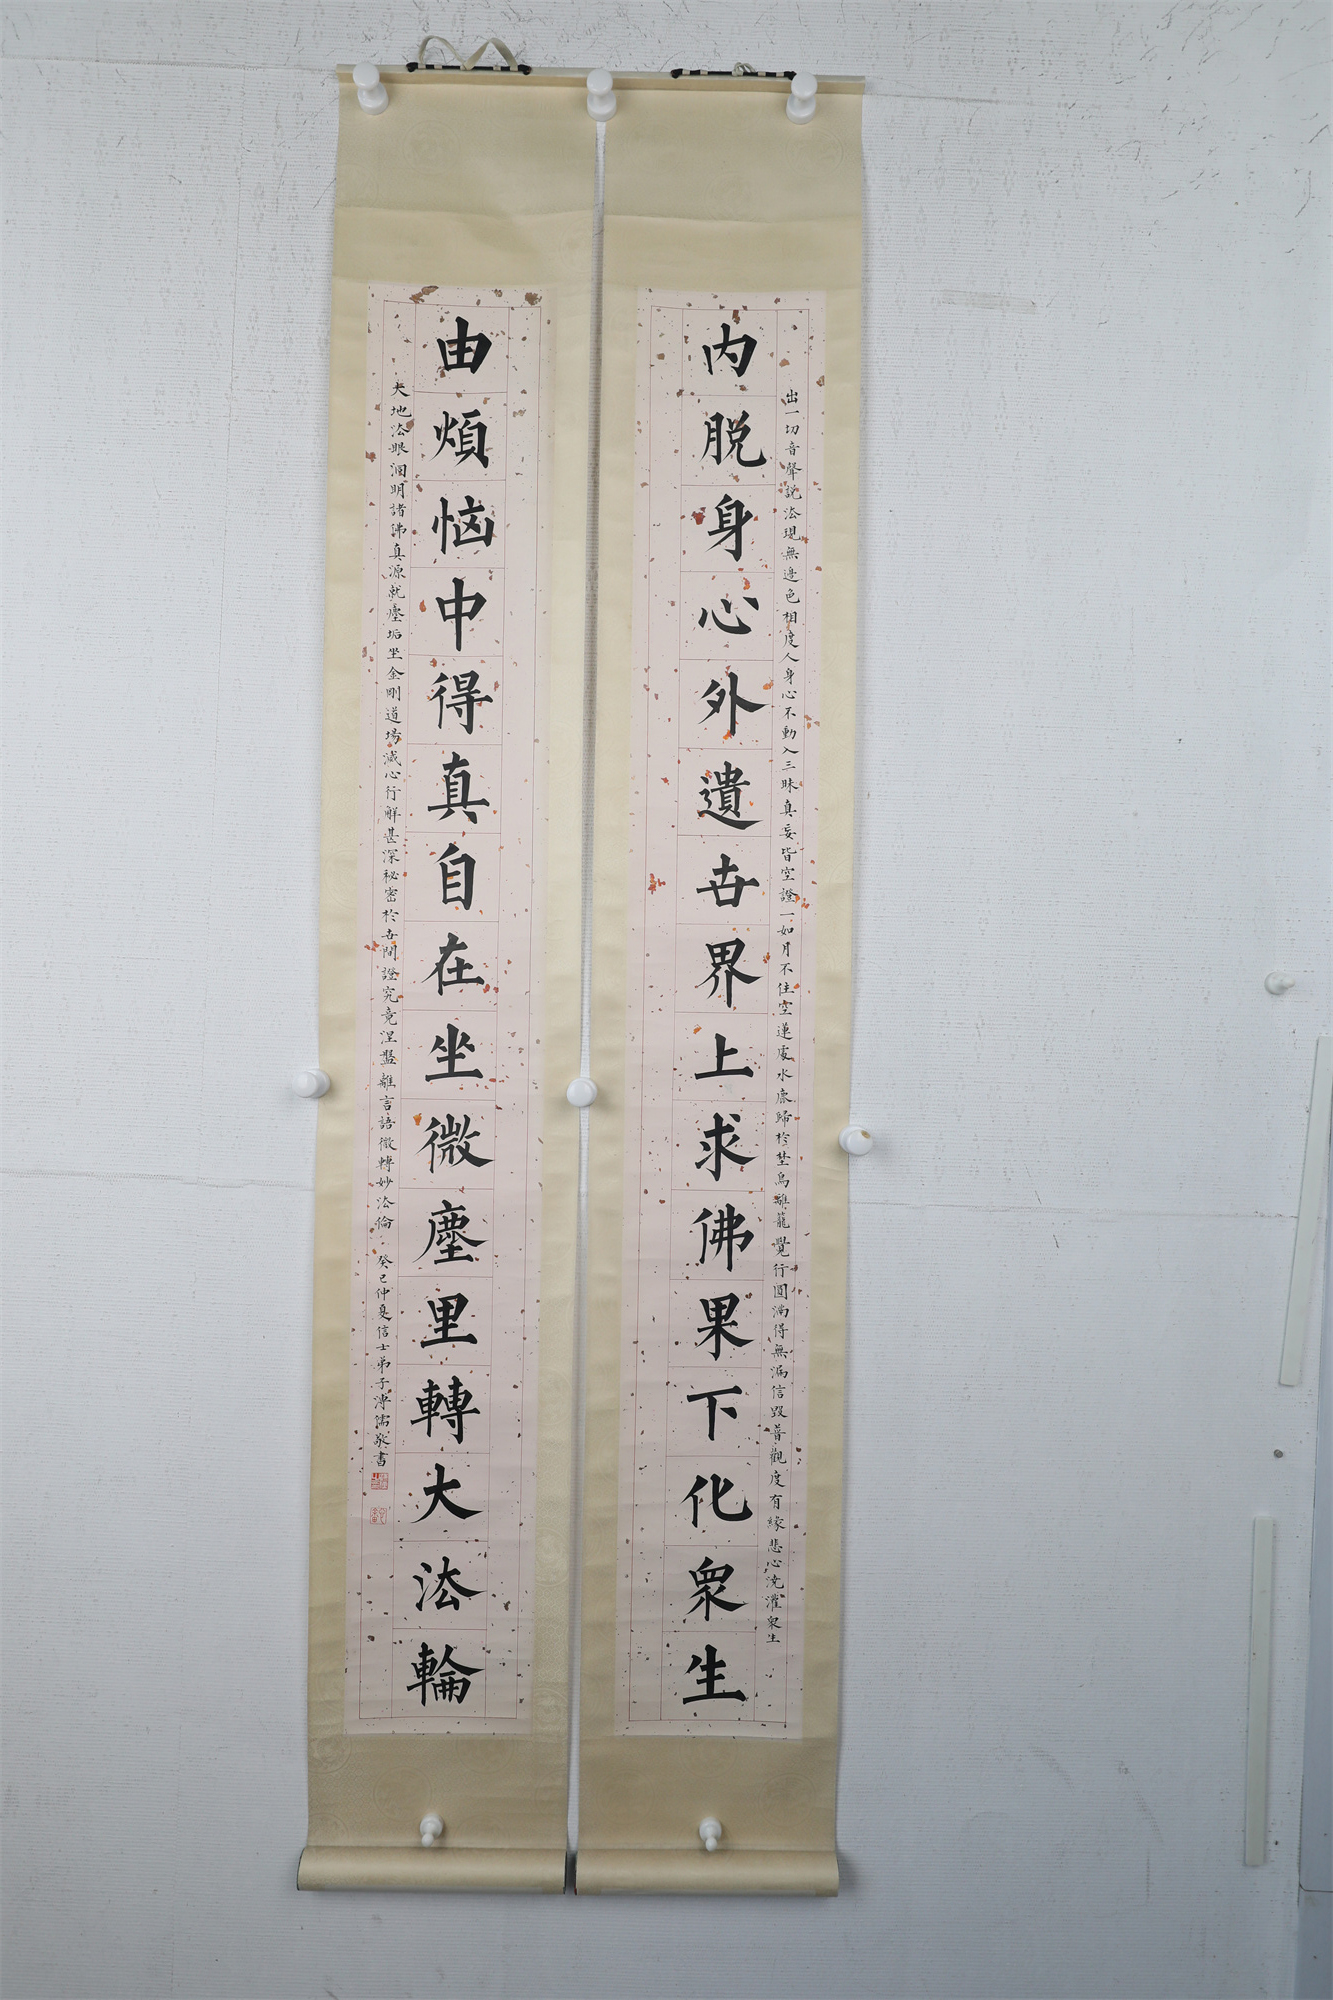 内脱身心外遺世界上求佛果下化衆生
出一切音聲説法現無邊色相度人身心不動入三昧真妄皆空證一如月不住空蓮處水鹿歸於埜鳥離籠覺行圓滿得無漏信毀普觀度有緣悲心洗灌衆生
由煩惱中得真自在坐微塵里轉大法輪
大地法眼淍明諸佛真源就塵垢坐金剛道場滅心行解甚深祕密於世間證究竟涅槃離言語微轉妙法倫
癸巳仲夏信士弟子溥儒敬書